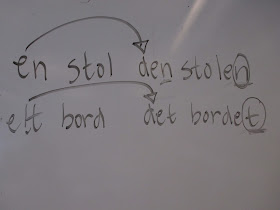 en stol den stolen
ett bord det bordet